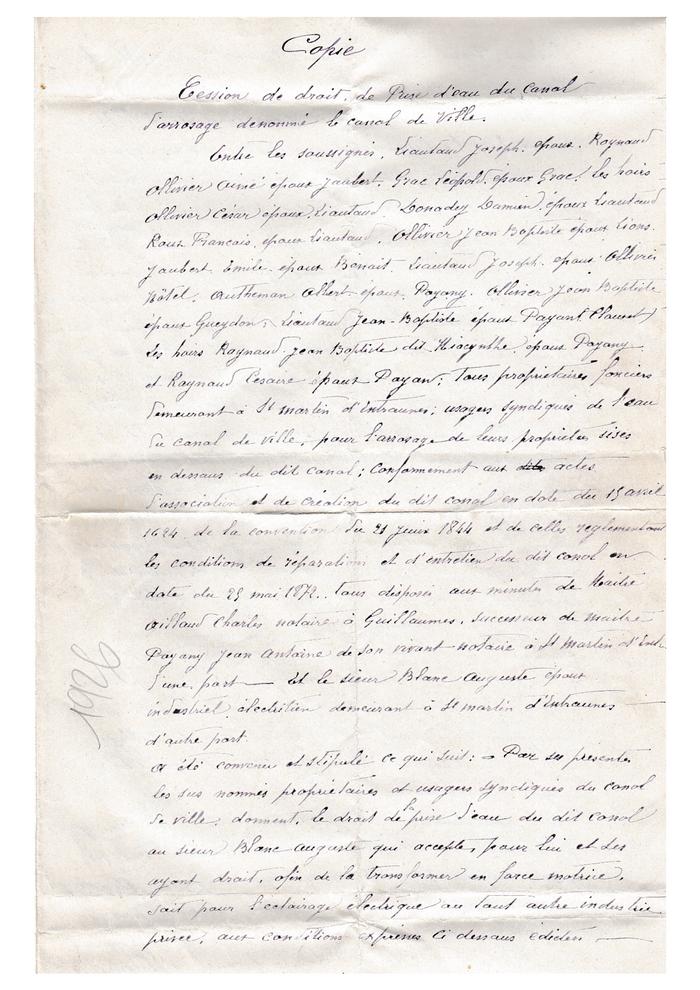 Copie
Cession de droit de Prise d'eau du Canal
d'arrosage denommé le canal de Ville.
Entre les soussignés, Liautaud Joseph, époux Raynaud
Ollivier Aimé époux Jaubert, Grac Léopold, époux Grac, les hoirs
Ollivier César époux Liautaud, Donadey Damien, époux Liautaud
Roux Francois, époux Liautaud, Ollivier Jean Baptiste époux Lions.
Jaubert Emile, époux Benoit, Liautaud Joseph, époux Ollivier
Hôtel, Autheman Albert époux Payany, Ollivier Jean Baptiste
époux Gueydon, Liautaud Jean-Baptiste époux Payant
Les hoirs Raynaud Jean Baptiste dit Hiacynthe, époux Payany
et Raynaud Cesaire époux Payan; Tous propriétaires fonciers
demeurant à St martin d'entraunes; usagers syndiqués de l'eau
du canal de ville, pour l'arrosage de leurs propriétés sises
en dessous du dit canal; conformement aux actes
d'association et de création du dit canal en date du 15 avril
1624, de la convention du 21 Juin 1844 et de celles reglementant
les conditions de réparations et d'entretien du dit canal en
date du 25 mai 1872, tous disposés aux minutes de Maitre
Charles notaire à Guillaumes, successeur de maitre
Payany Jean Antoine de son vivant notaire à St Martin d'Entr
d'une part — Et le sieur Blanc Auguste époux
industriel électritien demeurant à St martin d'Entraunes —
d'autre part.
a été convenu et stipulé ce qui suit: = Par ses presentes
les sus nommés propriétaires et usagers syndiqués du canal
de ville, donnent, le droit de la prise d'eau du dit canal
au sieur Blanc Auguste qui accepte, pour lui et ses
ayant droit, afin de la transformer en force motrice,
soit pour l'eclairage électrique ou tout autre industrie
privée, aux conditions expresses ci dessous édictées —
1926